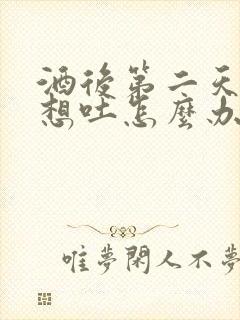 酒後第二天
想吐怎麼办
唯夢閑人不夢